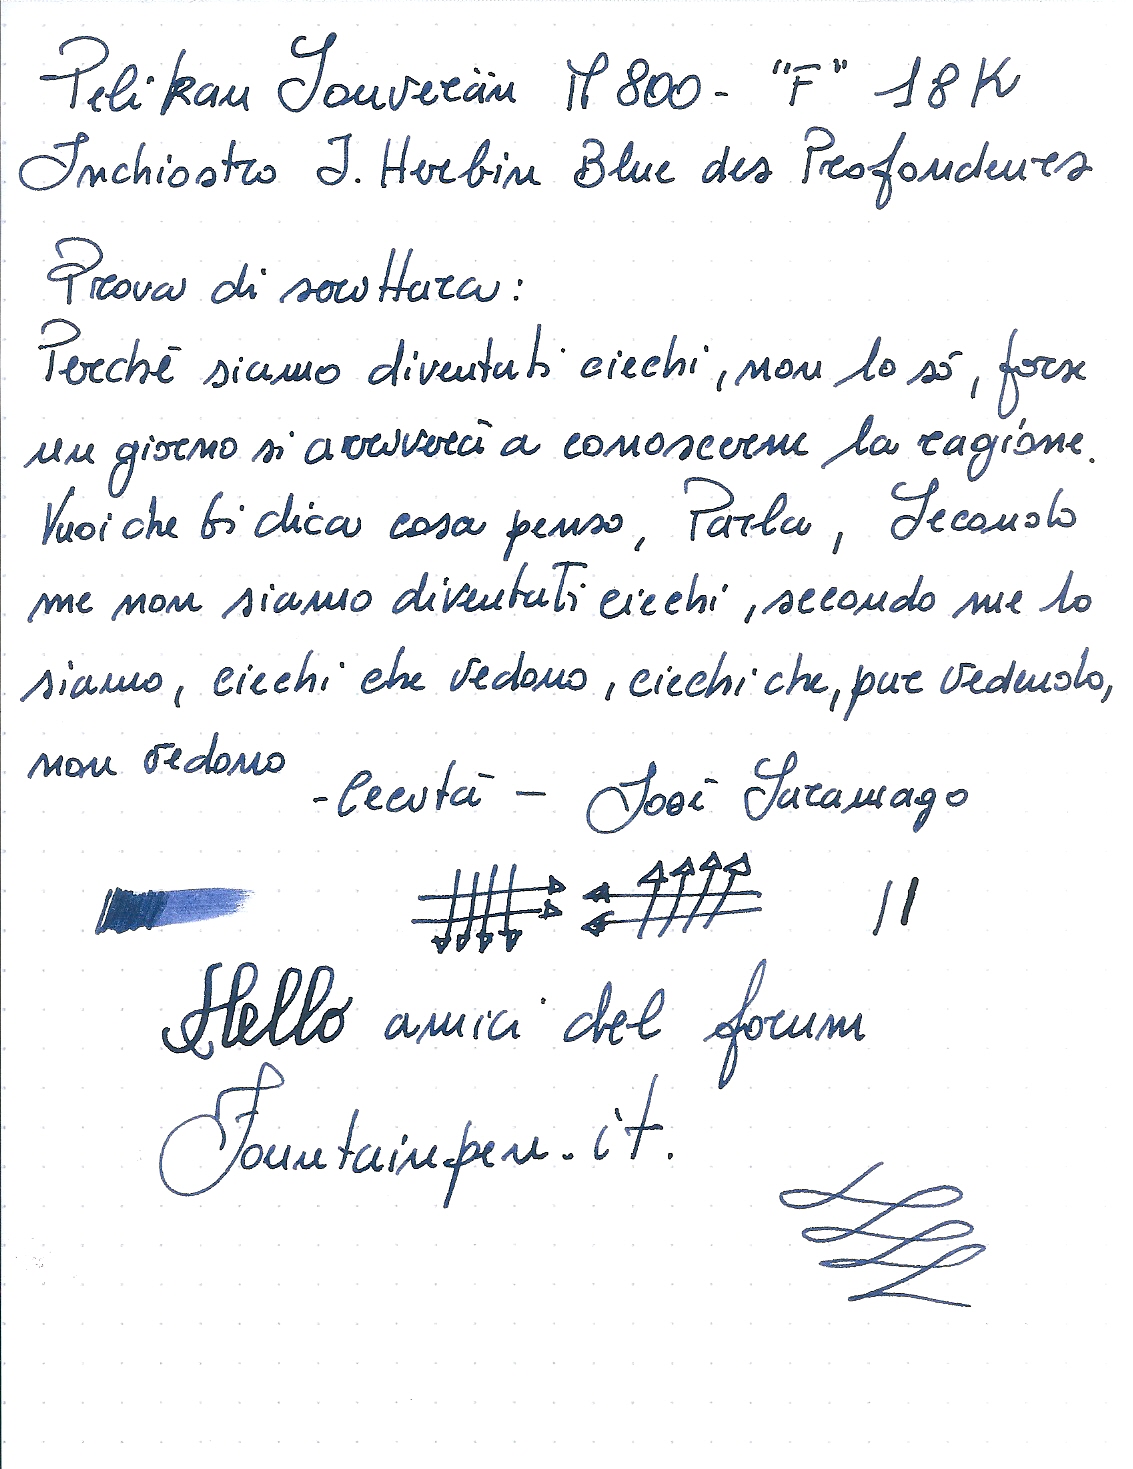 Pelikan Souverän M800 - "F" 18K
Inchiostro J. Herbin Blue des Profondeurs
Prova di scrittura:
Perchē siamo diventati ciechi, non lo só, forse
un giorno si arriverā a conoscerne la ragione.
Vuoi che ti dica cosa penso, Parla, Secondo
me non siamo diventati ciechi, secondo me lo
siamo, ciechi che vedono, ciechi che, pur vedendo,
non vedono
- Cecitā - Josē Saramago
Hello amici del forum
Fountainpen.it.